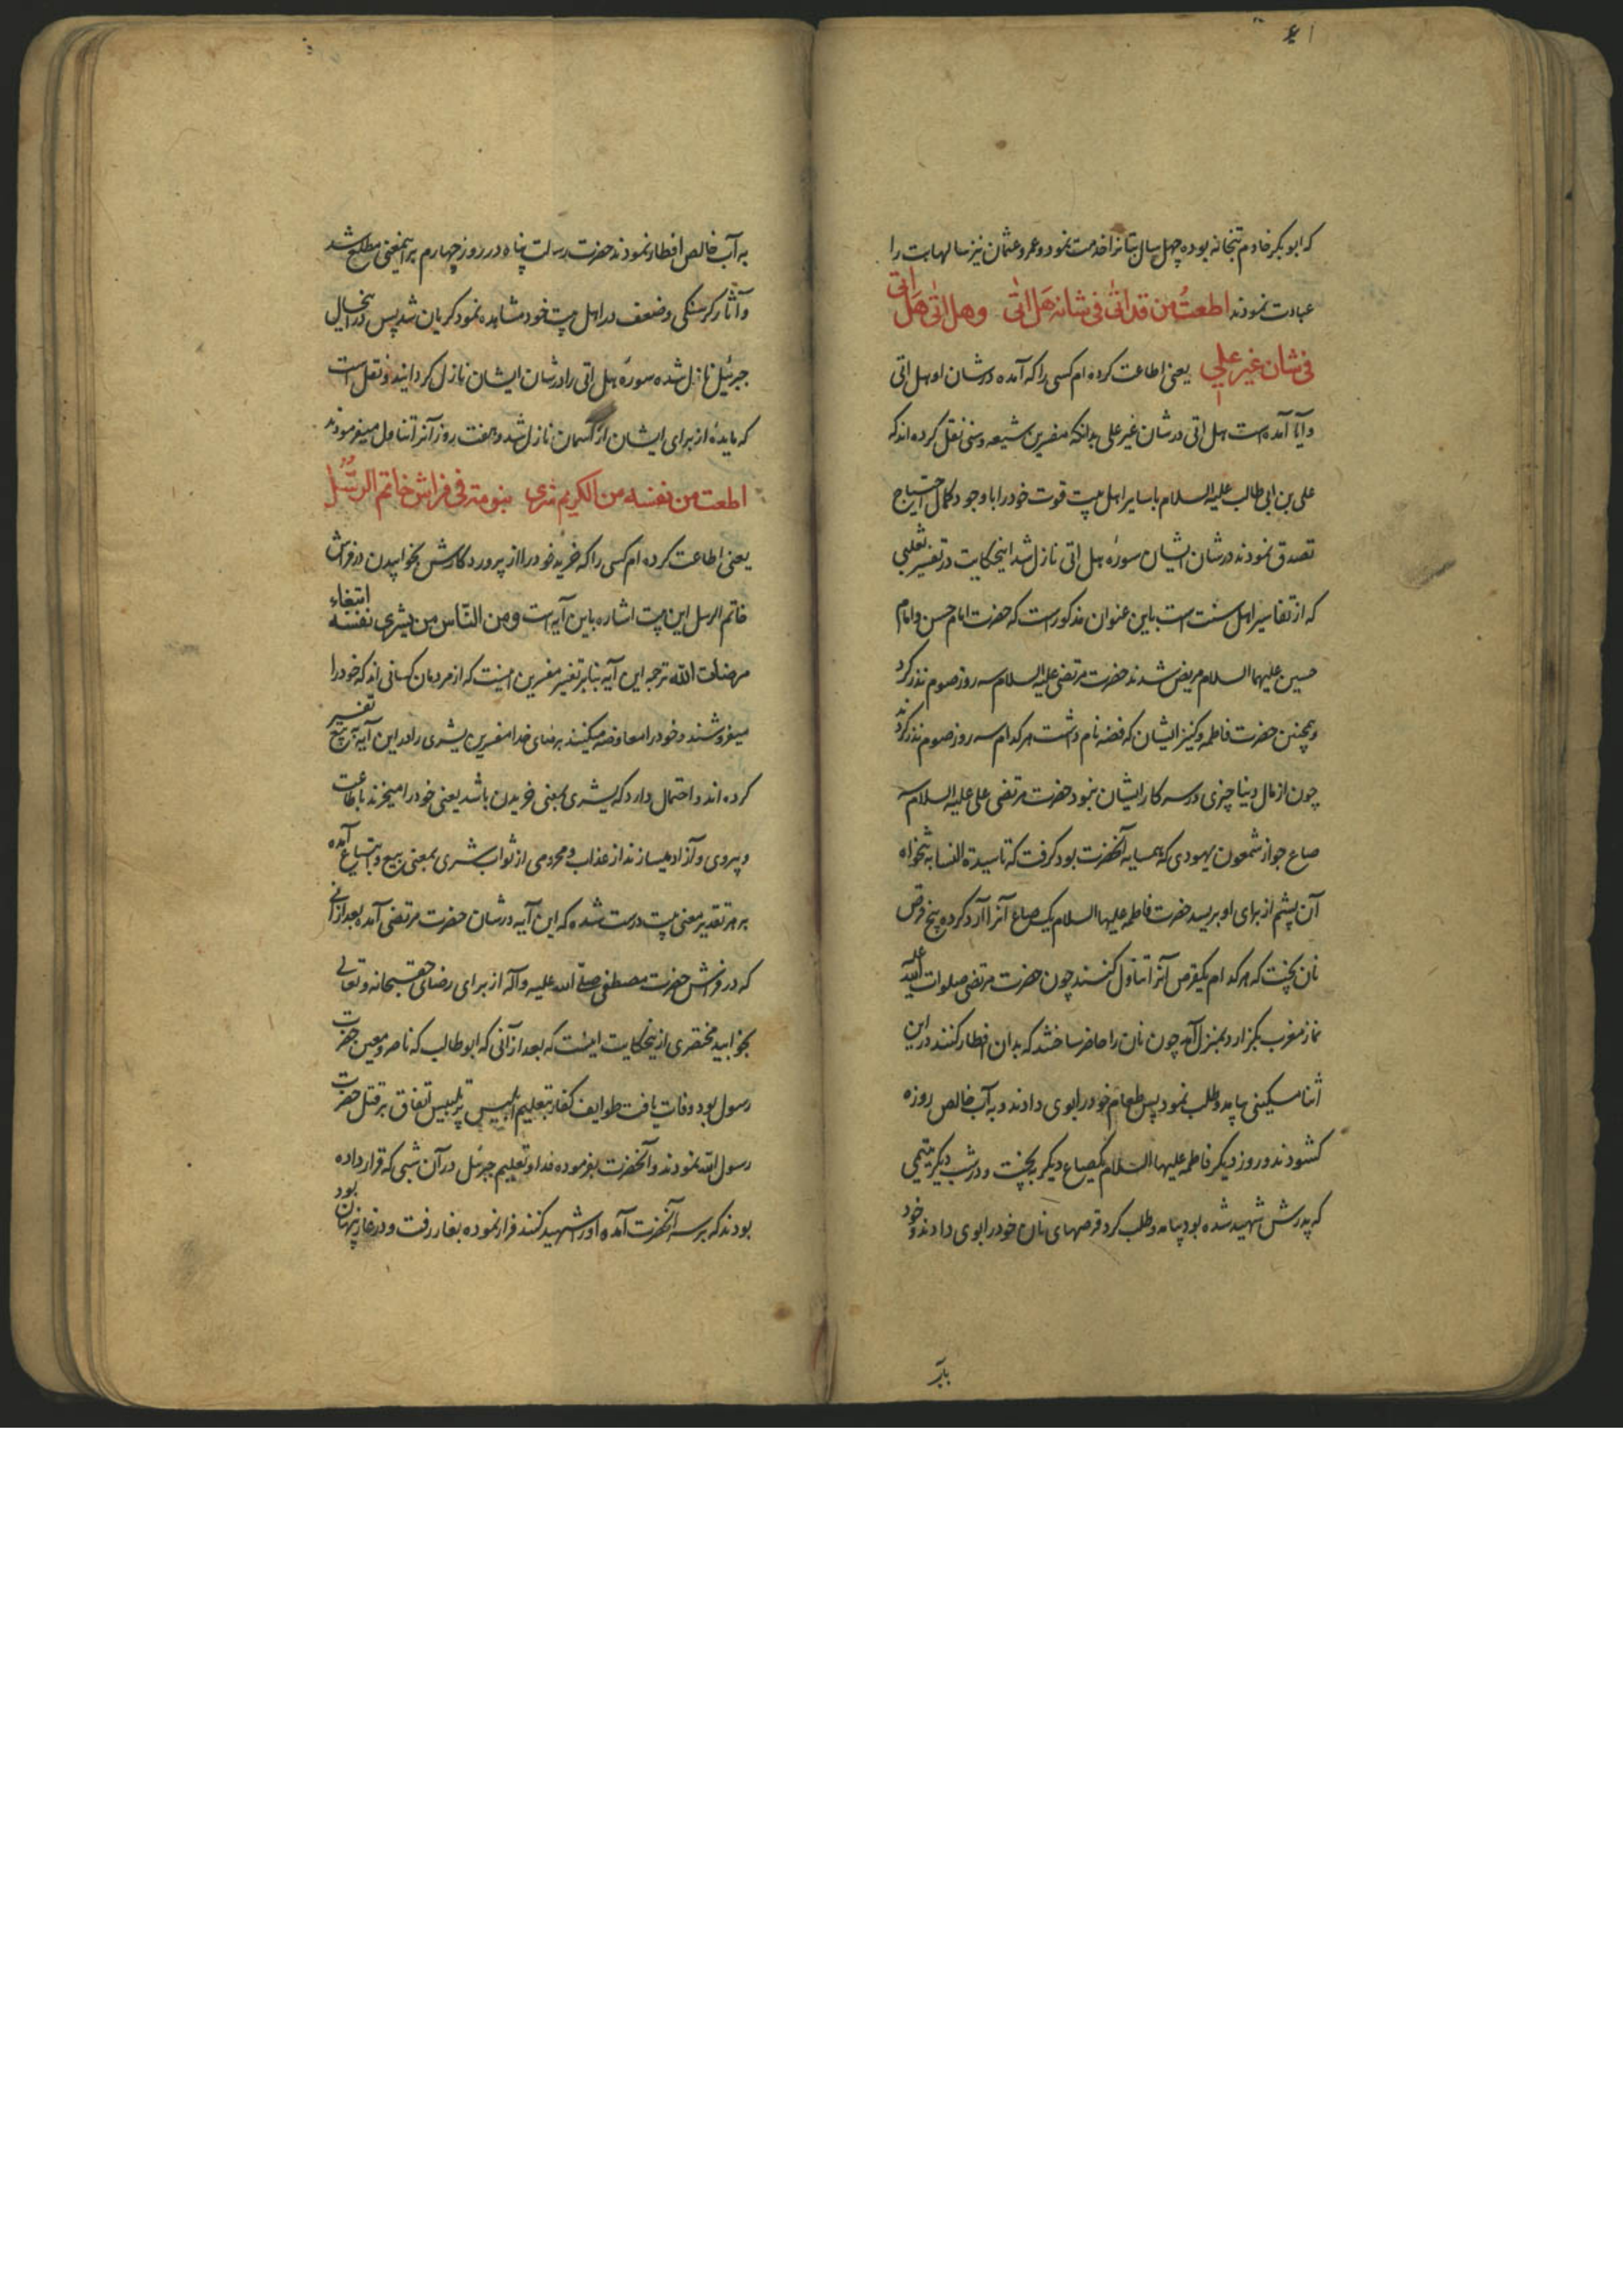 که ابو بکر خادم بتخانه بوده چهل سال بتانرا خدمت نمود و عمر و عثمان نیز سالها بت را
عبادت نمودند اطعتُ من قد اتٰی فی شانه هَل اتٰی وهل اتٰی هَل اتی
فی شان غیر علي یعنی اطاعت کرده ام کسی را که آمده در شان او هل اتی
و آیا آمده است هل اتی در شان غیر علی بدانکه مفسرین شیعه و سنی نقل کرده اند که
علی بن ابی طالب علیه السلام با سایر اهل بیت قوت خود را با وجود کمال احتیاج
تصدق نمودند در شان ایشان سوره هل اتی نازل شد اینحکایت در تفسیر ثعلبی
که از تفاسیر اهل سنت است باین عنوان مذکور است که حضرت امام حسن و امام
حسین علیهما السلام مریض شدند حضرت مرتضی علیه السلام سه روز صوم نذر کرد
و همچنین حضرت فاطمه و کنیز ایشان که فضه نام داشت هر کدام سه روز صوم نذر کردند
چون از مال دنیا چیزی در سرکار ایشان نبود حضرت مرتضی علی علیه السلام سه
صاع جو از شمعون یهودی که همسایه آنحضرت بود گرفت که تا سیدة النسا به تنخواه
آن پشم از برای او بریسد حضرت فاطمه علیها السلام یک صاع آنرا آرد کرده پنج قرص
نان پخت که هر کدام یکقرص آنرا تناول کنند چون حضرت مرتضی صلوات الله علیه
نماز مغرب بگزارد و بمنزل آمد چون نان را حاضر ساختند که بدان افطار کنند در این
اثنا مسکینی بیامد و طلب نمود پس طعام خود را بوی دادند و به آب خالص روزه
کشودند و روز دیگر فاطمه علیها السلام یکصاع دیگر به پخت و در شب دیگر یتیمی
که پدرش شهید شده بود بیامد و طلب کرد قرصهای نان خود را بوی دادند و خود
به آب خالص افطار نمودند حضرت رسالت پناه در روز چهارم بر اینمعنی مطلع شد
و آثار کرسنکی و ضعف در اهل بیت خود مشاهده نمود کریان شد پس در انحال
جبرئیل نازل شده سوره هل اتی را در شان ایشان نازل کردانید و نقل است
که مایده از برای ایشان از آسمان نازل شد و هفت روز آنرا تناول میفرمودند
اطعت من نفسه من الکریم شری بنومه فی فراش خاتم الرُّسُل
یعنی اطاعت کرده ام کسی را که خرید خود را از پروردکارش بخوابیدن در فراش
خاتم الرسل این بیت اشاره باین آیه است ومن النّاس من یشری نفسه ابتغاء
مرضات الله ترجمه این آیه بنابر تفسیر مفسرین اینست که از مردمان کسانی اند که خود را
میفروشند و خود را معاوضه میکنند برضای خدا مفسرین یشری را در این آیه به بیع تفسیر
کرده اند و احتمال دارد که یشری بمعنی خریدن باشد یعنی خود را میخرند باطاعت
و پیروی و آزاد میسازند از عذاب و محرومی از ثواب شری بمعنی بیع و ابتیاع آمده
بر هر تقدیر معنی بیت درست شده که این آیه در شان حضرت مرتضی آمده بعد از آنی
که در فراش حضرت مصطفی صلی الله علیه و آله از برای رضای حق سبحانه و تعالی
بخوابید مختصری از اینحکایت اینست که بعد از آنی که ابو طالب که ناصر و معین حضرت
رسول بود وفات یافت طوایف کفار بتعلیم ابلیس پر تلبیس اتفاق بر قتل حضرت
رسول الله نمودند و آنحضرت بفرموده خدا و تعلیم جبرئیل در آن شبی که قرار داده
بودند که بر سر آنحضرت آمده او را شهید کنند فرار نموده بغار رفت و در غار پنهان بود
بآب